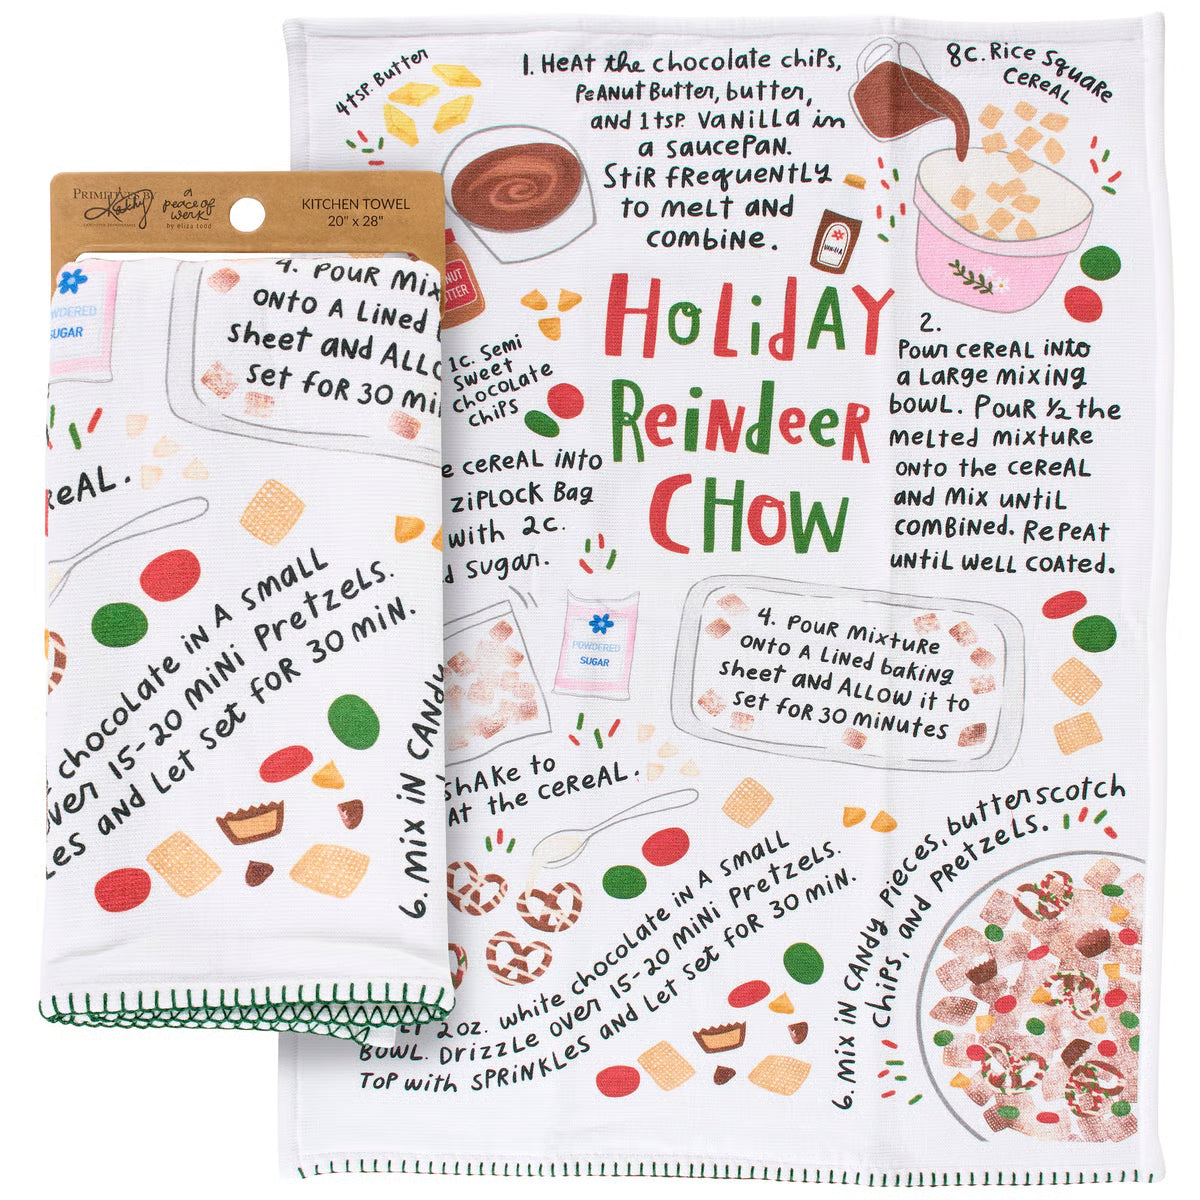 4 tsp. Butter
1. Heat the chocolate chips,
Peanut Butter, butter,
and 1 tsp. vanilla in
a saucepan.
Stir frequently
to melt and
combine.
8c. Rice Square
Cereal
VANILLA
Holiday
Reindeer
Chow
1c. Semi
Sweet
Chocolate
Chips
2.
Pour cereal into
a large mixing
bowl. Pour ½ the
melted mixture
onto the cereal
and mix until
combined. Repeat
until well coated.
cereal into
ziplock Bag
with 2c.
sugar.
POWDERED
SUGAR
shake to
the cereal.
4. Pour mixture
onto a lined baking
sheet and allow it to
set for 30 minutes
2 oz. white chocolate in a small
bowl. Drizzle over 15-20 mini pretzels.
Top with sprinkles and let set for 30 min.
6. Mix in candy pieces, butterscotch
chips, and pretzels.
PRIMITIVES BY
Kathy
a
peace of
werk
by eliza todd
KITCHEN TOWEL
20" x 28"
SUGAR
4. Pour mix
onto a lined
sheet and
set for 30
chocolate in a small
15-20 mini pretzels.
and let set for 30 min.
6. mix in candy